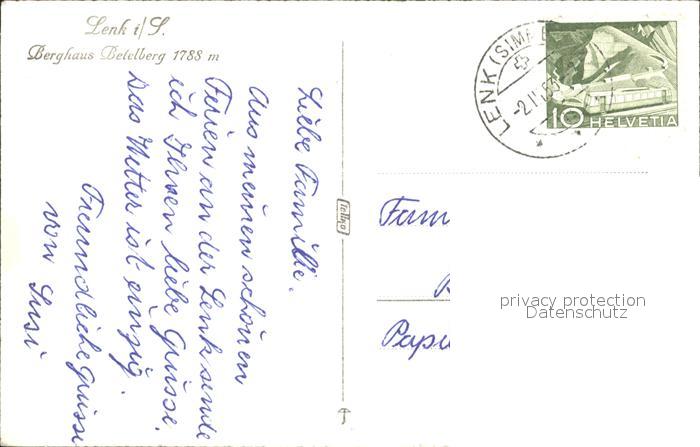 Lenk i/S.
Berghaus Betelberg 1788 m
Liebe Familie.
Aus meinen schönen
Ferien an der Lenk sende
ich Ihnen liebe Grüsse.
Das Wetter ist einzig.
Freundliche Grüsse
von Susi
LENK (SIMM
-2.II.53
10 HELVETIA
Fam
Papi
privacy protection
Datenschutz